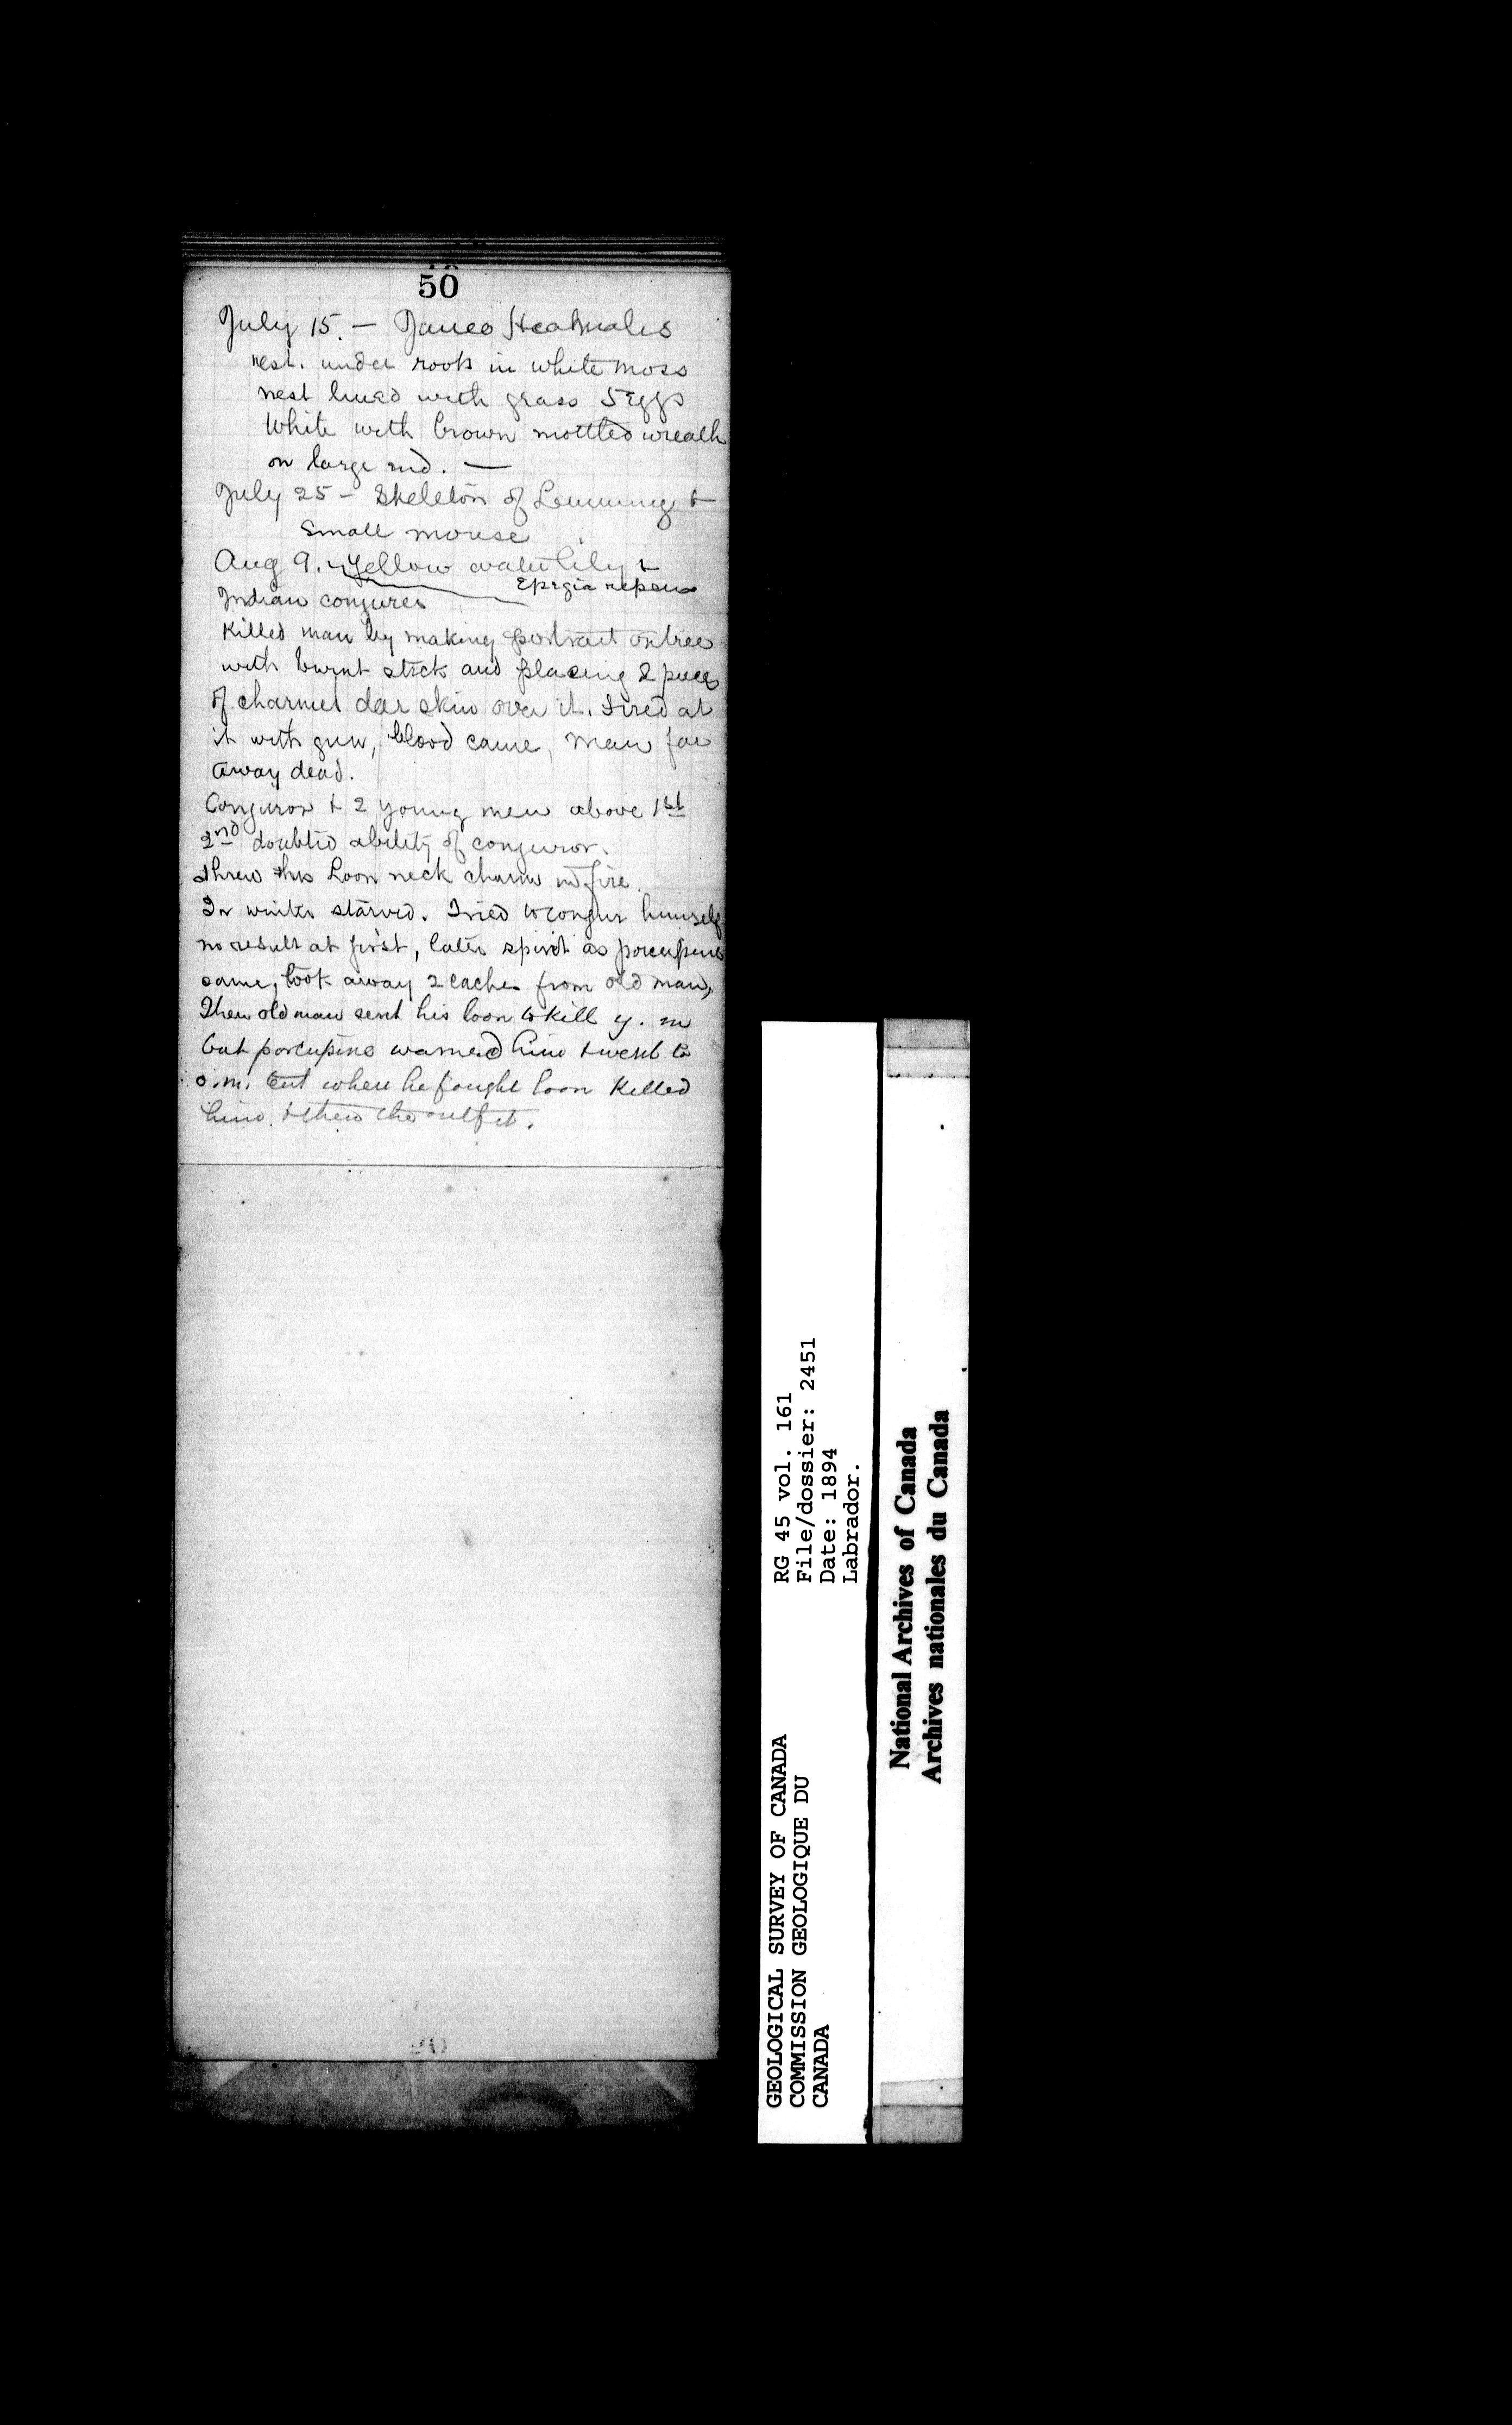 50
July 15. — Junco Heamales
nest. under roots in white moss
nest lined with grass 5 Eggs
White with brown mottled wreath
on large end. —
July 25 - Skeleton of Lemming &
small mouse
Aug 9. - Yellow waterlily &
Epegia repens
Indian conjurer
Killed man by making portrait on tree
with burnt stick and placing 2 pieces
of charmed deer skin over it. Fired at
it with gun, blood came, Man far
away dead.
Conjuror & 2 young men above 1st
2nd doubted ability of conjuror.
threw his Loon neck charm in fire.
In winter starved. Tried to conjur himself
no result at first, later spirit as porcupine
came, took away 2 caches from old man,
Then old man sent his loon to kill y. m
but porcupine warned him & went to
o.m. tent where he fought loon killed
him & then the outfit.
RG 45 vol. 161
File/dossier: 2451
Date: 1894
Labrador.
GEOLOGICAL SURVEY OF CANADA
COMMISSION GEOLOGIQUE DU
CANADA
National Archives of Canada
Archives nationales du Canada